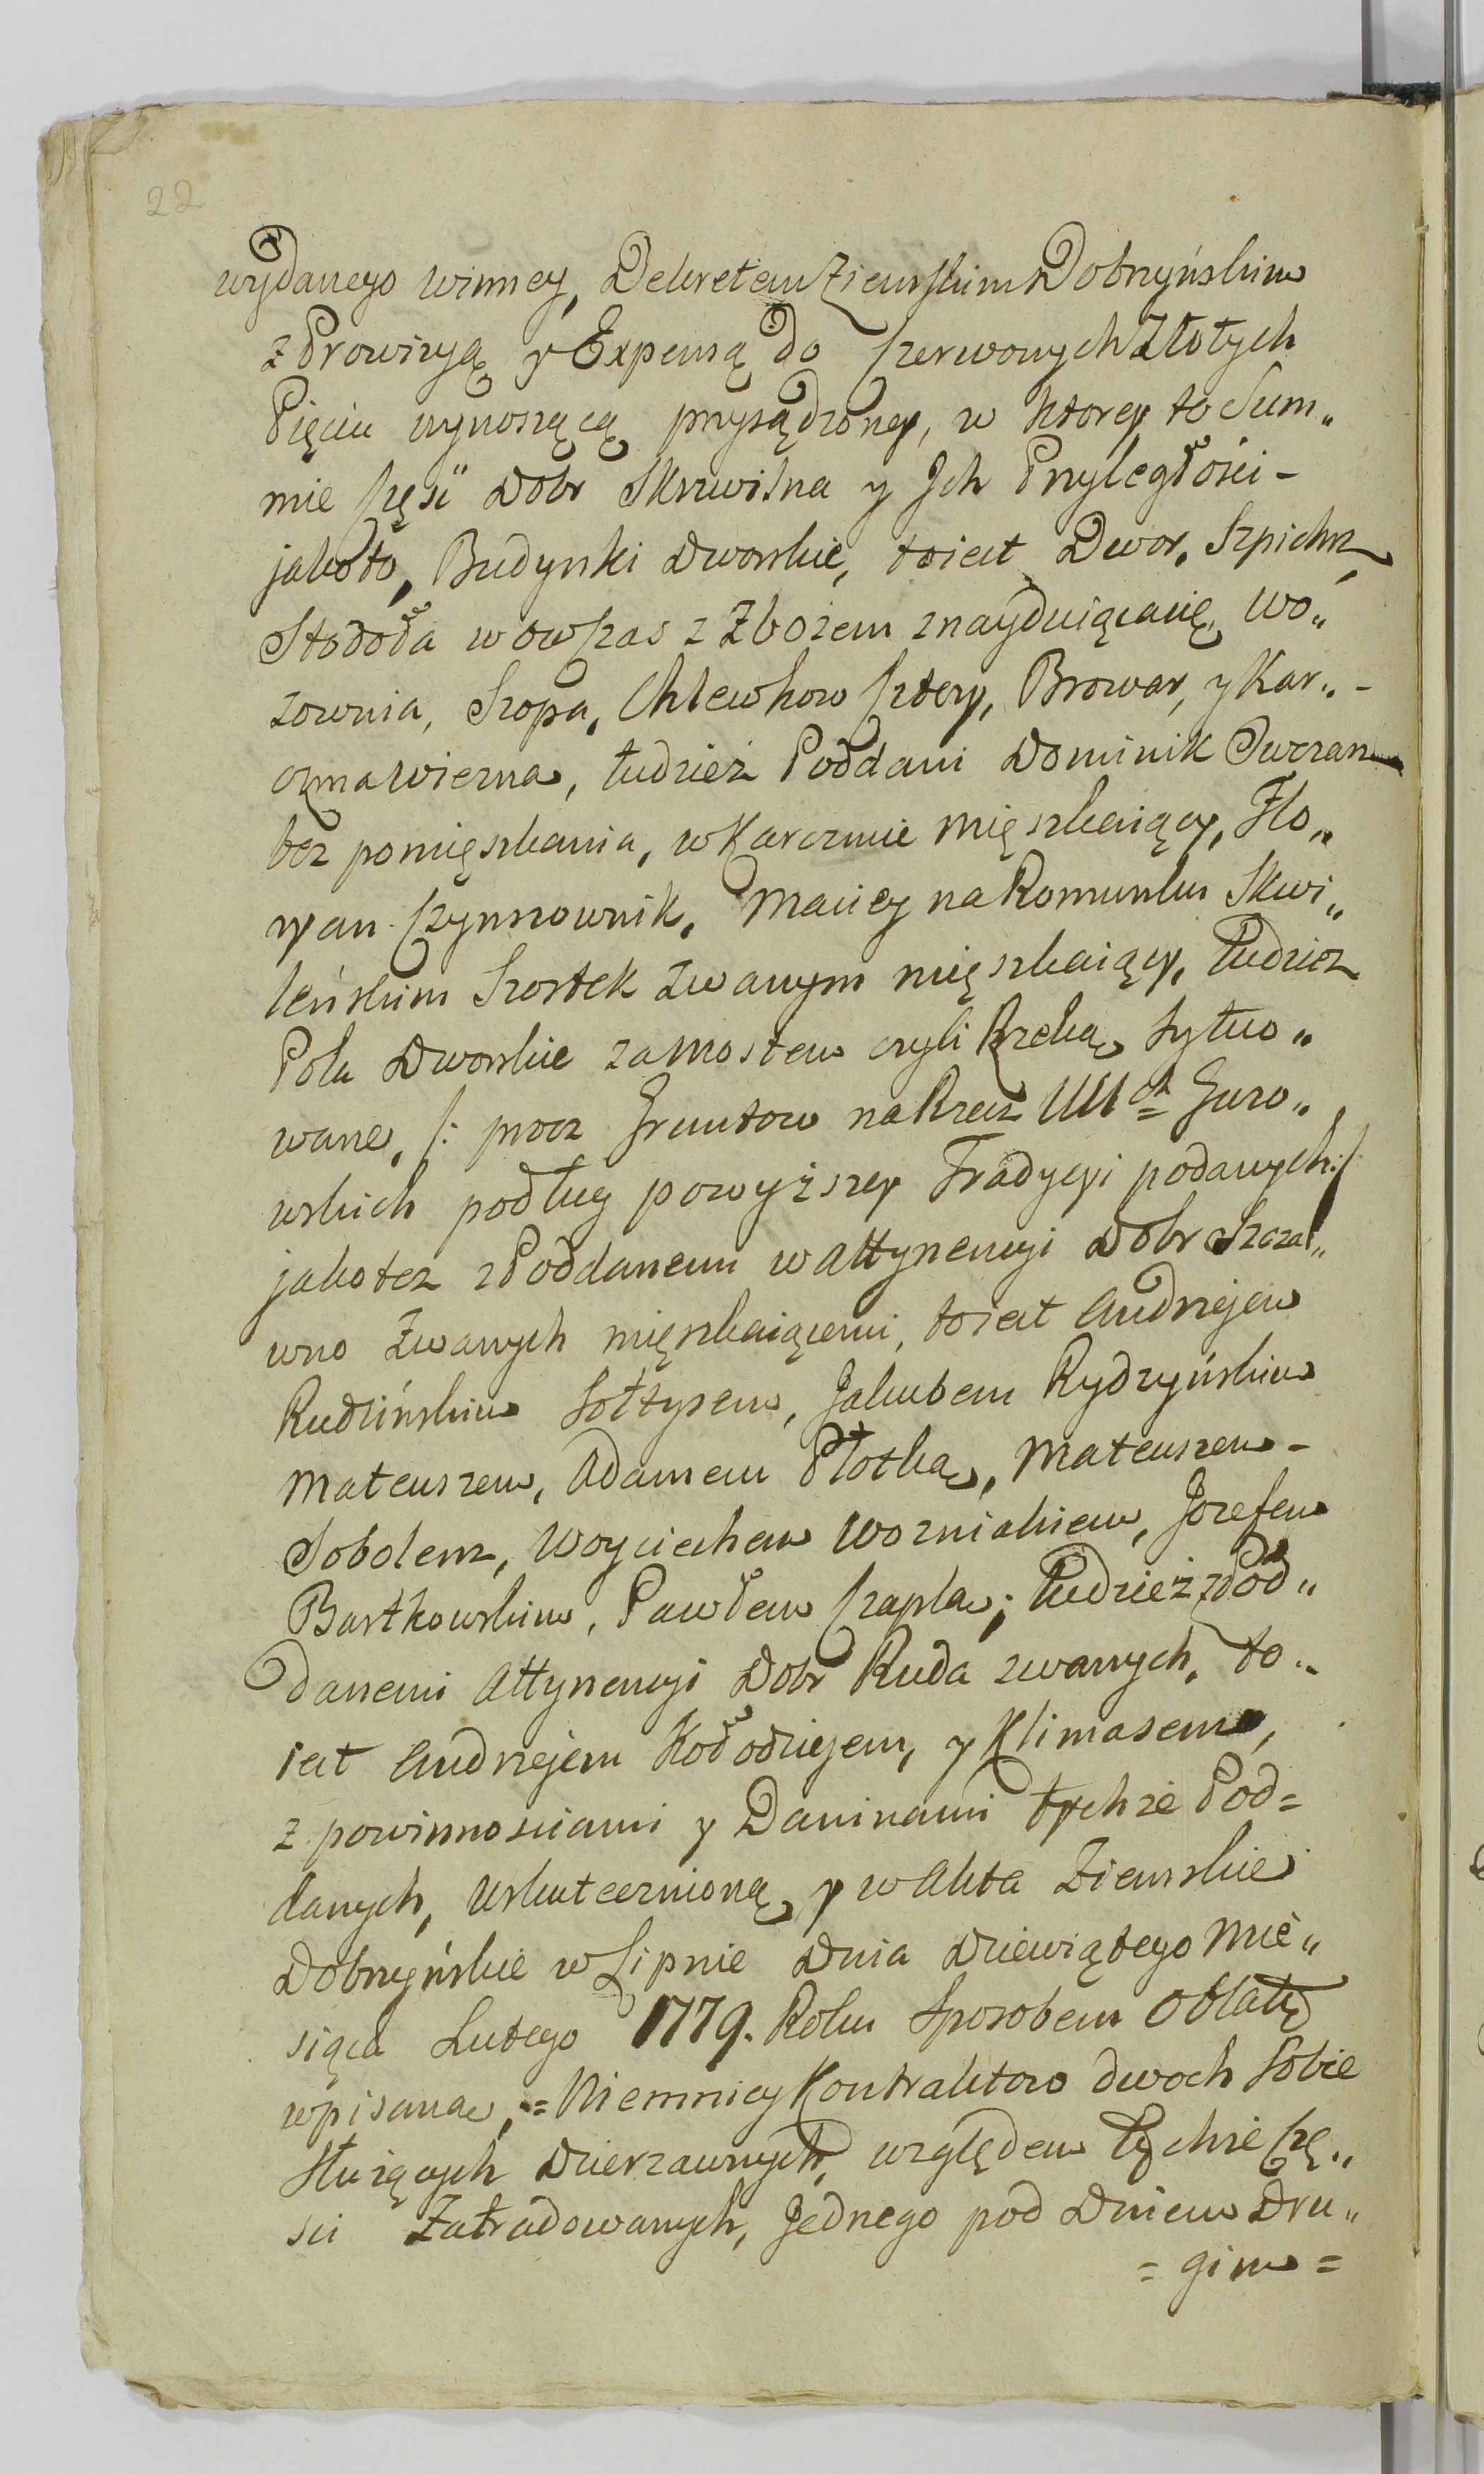 22
wydanego winney, Dekretem Ziemskim Dobrzyńskim
z Prowizyą y Expensą do Czerwonych Złotych
Pięciu wynoszącą przysądzoney, w ktorey to Sum„
mie Częsci Dobr Skrwilna y Jch Przyległości -
jakoto, Budynki Dworskie, toiest Dwor, Szpichrz,
Stodoła wowczas z Zbozem znayduiącasię, Wo„
zownia, Szopa, Chlewkow Cztery, Browar, y Kar„-
czma Wierzna, tudzież Poddani Dominik
bez pomięszkania, w Karczmie mięszkaiący, Flo„
ryan Czynszownik, Maciey na Romunku Skwi„
leńskim Szostek zwanym mięszkaiący, tudziez
Pola Dworskie za Mostem czyli Rzeką sytuo„
wane, /: procz Gruntow na Rzecz UUch Guro„
wskich podług powyższey Tradycyi podanych:/
jakotez z Poddanemi w Attynencyi Dobr Szczal„
wno Zwanych mięszkaiącemi, toiest Andrzejem
Rudzińskim Sołtysem, Jakubem Rydzyńskim
Mateuszem, Adamem Płotką, Mateuszem -
Sobolem, Woyciechem Wozniakiem, Jozefem
Bartkowskim, Pawłem Czapla; tudzież z Pod„
danemi Attynencyi Dobr Ruda zwanych, to„
iest Andrzejem Kołodziejem, y Klimasem,
z powinnosciami y Daninami tychże Pod=
danych, uskutecznioną, y w Akta Ziemskie
Dobrzyńskie w Lipnie Dnia Dziewiątego Mie„
siąca Lutego 1779. Roku Sposobem Oblaty
wpisana, = Niemniey Kontraktow dwoch Sobie
Służących Dzierzawnych, względem tychże Czę„
sci Zatradowanych, Jednego pod Dniem Dru„
= gim =